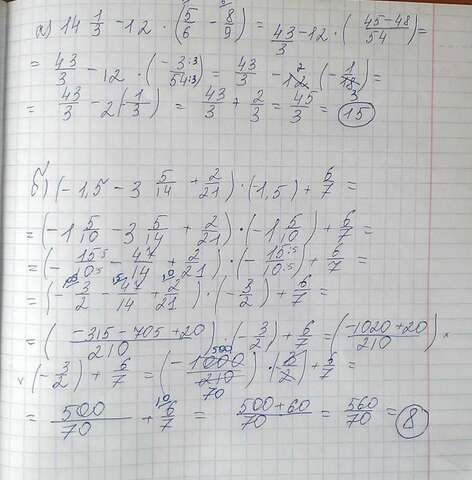 а) 14 1/3 − 12 · (5/6 − 8/9) = 43/3 − 12 · (45−48/54) =
= 43/3 − 12 · (−3:3/54:3) = 43/3 − 12 2 (−1/18 3) =
= 43/3 − 2(−1/3) = 43/3 + 2/3 = 45/3 = 15
б) (−1,5 − 3 5/14 + 2/21) · (−1,5) + 6/7 =
= (−1 5/10 − 3 5/14 + 2/21) · (−1 5/10) + 6/7 =
= (−15:5/10:5 − 47/14 + 2/21) · (−15:5/10:5) + 6/7 =
= (−3/2 − 47/14 + 2/21) · (−3/2) + 6/7 =
= (−315−705+20/210) · (−3/2) + 6/7 = (−1020+20/210) ×
× (−3/2) + 6/7 = (−1000 500/210 70) · (3/2) + 6/7 =
= 500/70 + 6/7 10 = 500+60/70 = 560/70 = 8